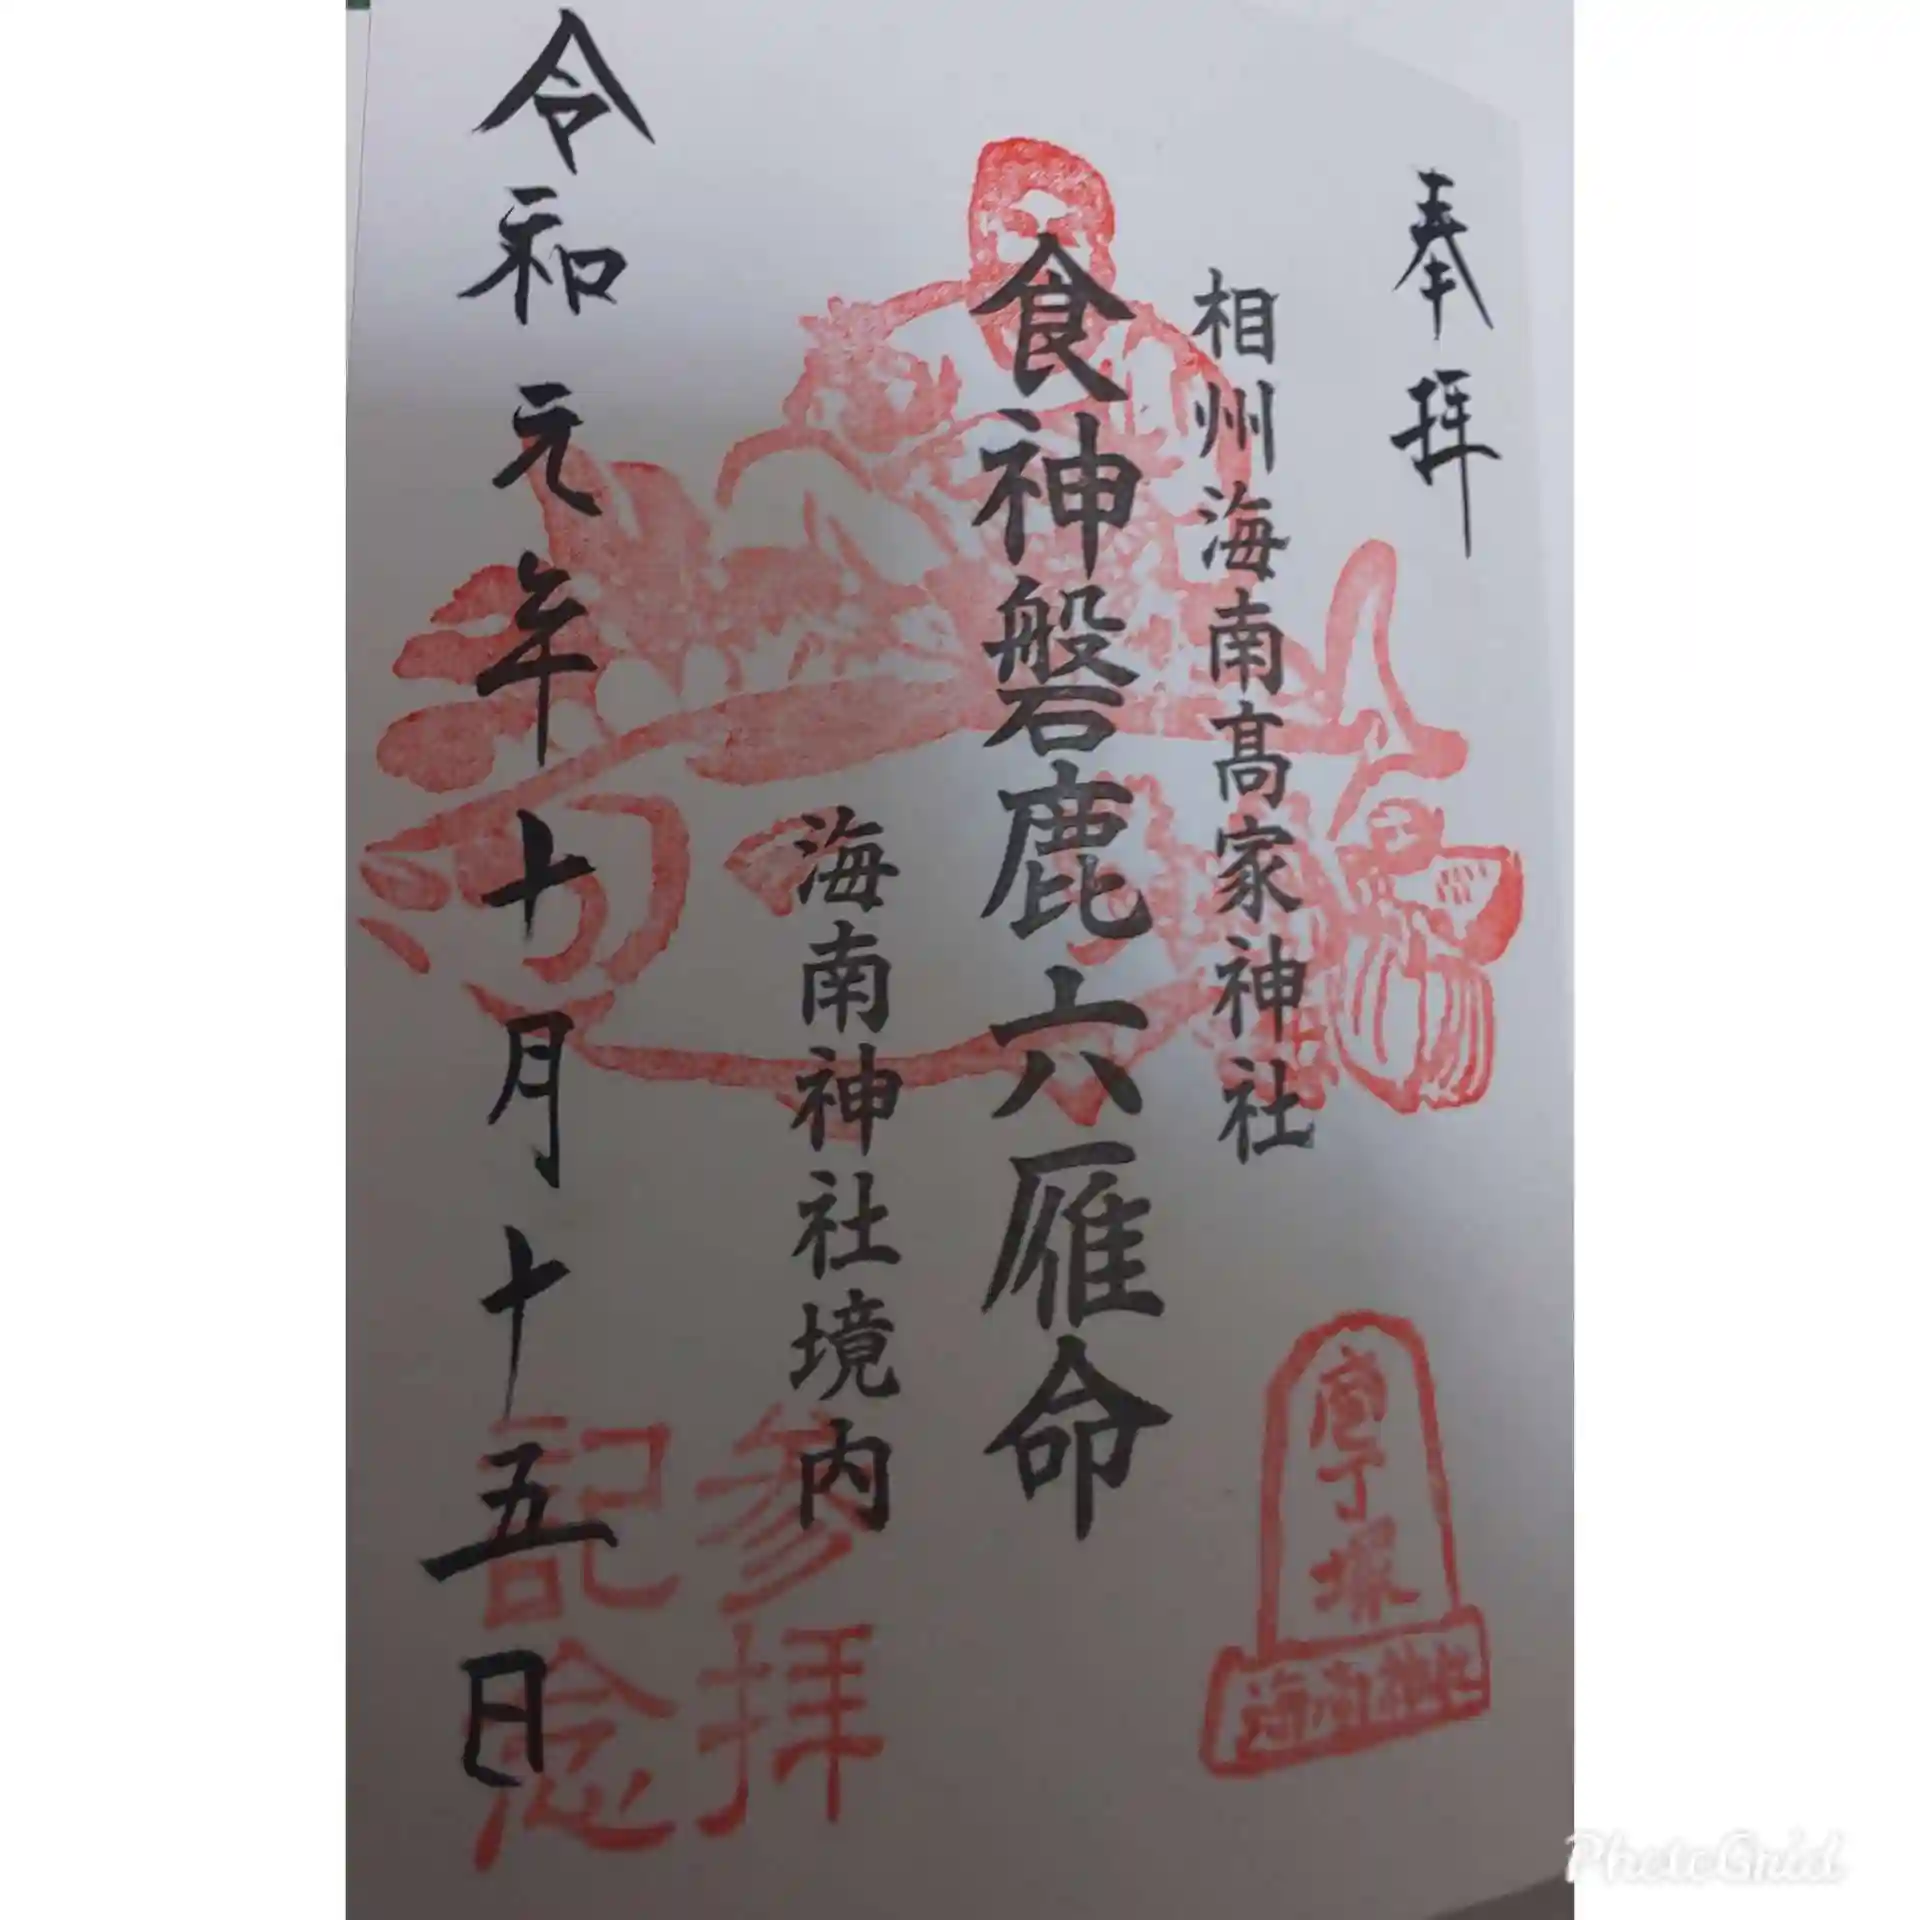 奉拝
相州海南髙家神社
食神磐鹿六雁命
海南神社境内
令和元年十月十五日
参拝
記念
庖丁塚
海南神社
PhotoGrid